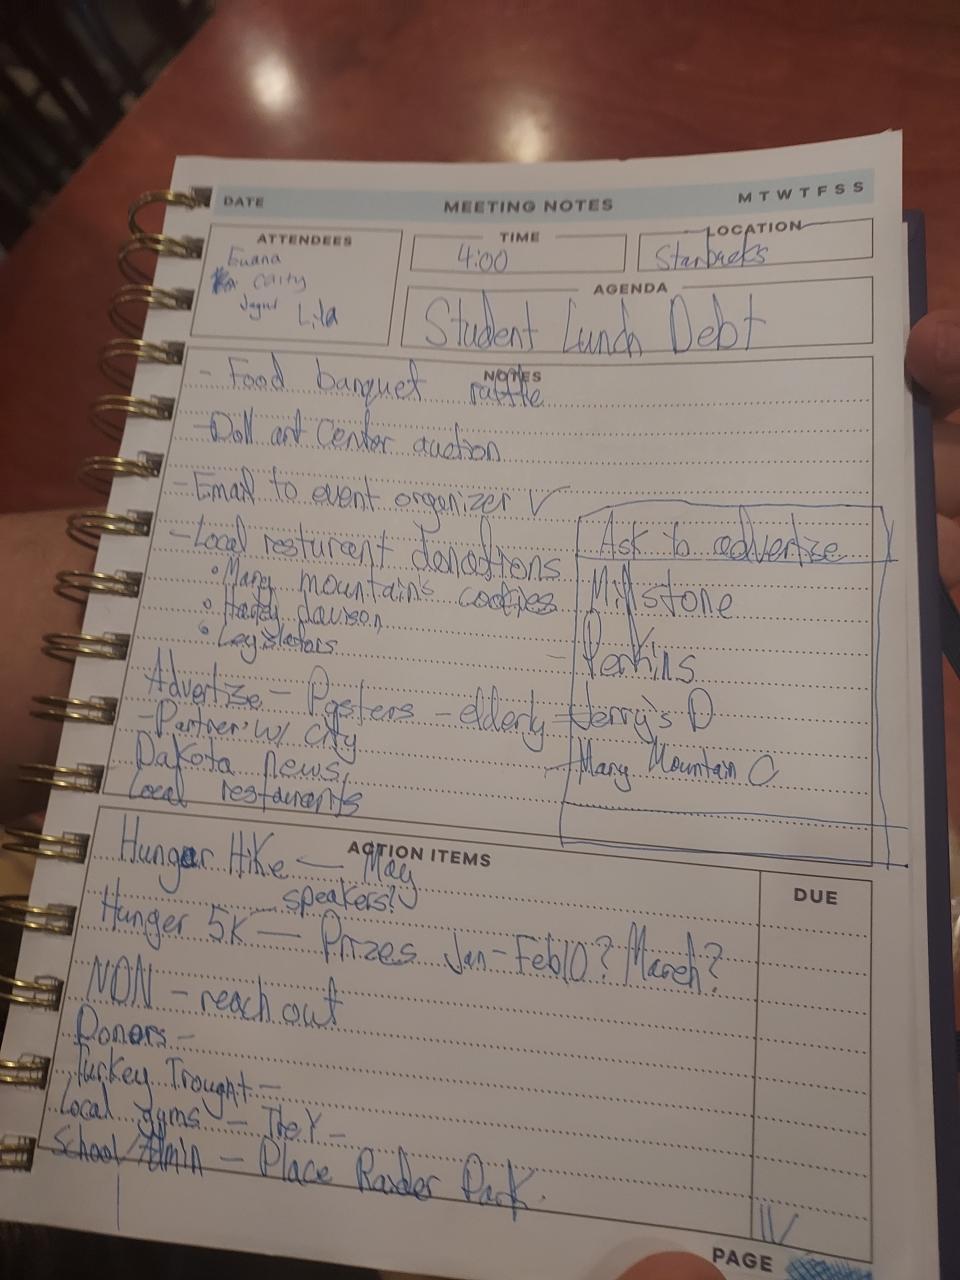 DATE MEETING NOTES M T W T F S S
ATTENDEES
Caity
Lila
TIME
4:00
LOCATION
Starbucks
AGENDA
Student Lunch Debt
NOTES
- Food banquet raffle
- Doll art Center auction
- Email to event organizer
- Local resturant donations
Mary mountain's cookies
Legislators
Advertize - Posters - elderly
- Partner w/ city
Dakota news,
Local restaurants
Ask to advertize
Millstone
- Perkins
Jerry's D
- Mary Mountain C
ACTION ITEMS
DUE
Hunger Hike — May
speakers?
Hunger 5K — Prizes Jan-Feb10? March?
NDN - reach out
Donors -
Turkey Trought -
Local gyms - The Y -
School Admin - Place Raider Park.
PAGE